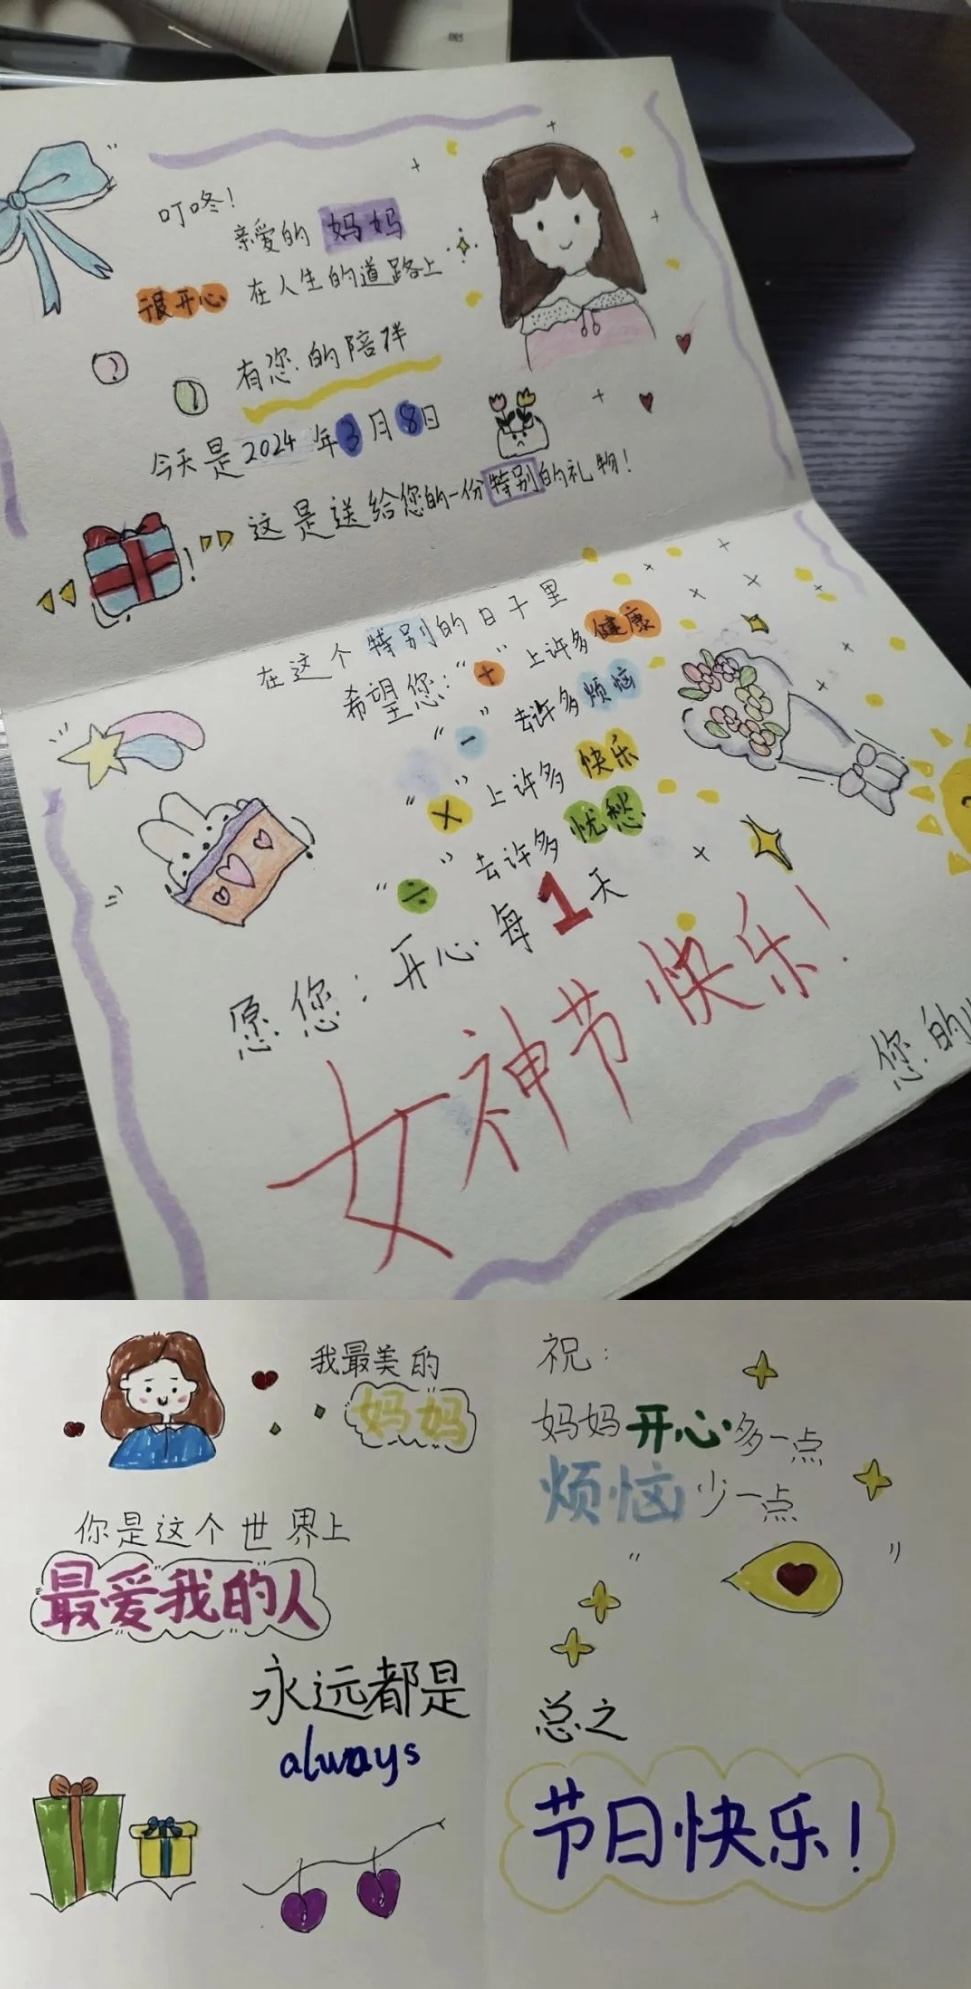 叮咚！
亲爱的 妈妈
很开心 在人生的道路上
有您的陪伴
今天是2024年3月8日
这是送给您的一份特别的礼物！
在这个特别的日子里
希望您：“+”上许多健康
“-”去许多烦恼
“×”上许多快乐
“÷”去许多忧愁
愿您：开心每1天
女神节快乐！
您的
我最美的
妈妈
你是这个世界上
最爱我的人
永远都是
always
祝：
妈妈开心多一点
烦恼少一点
总之
节日快乐！